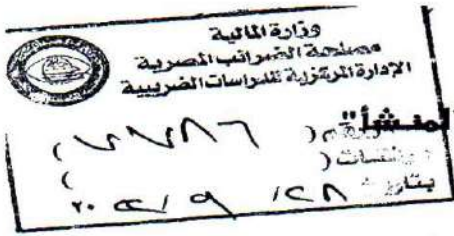 وزارة المالية
مصلحة الضرائب المصرية
الإدارة المركزية للدراسات الضريبية
المنشأ"
( ٧٧٨٦ )
( )
بتاريخ ٢٨ / ٩ / ٢٠٢٢